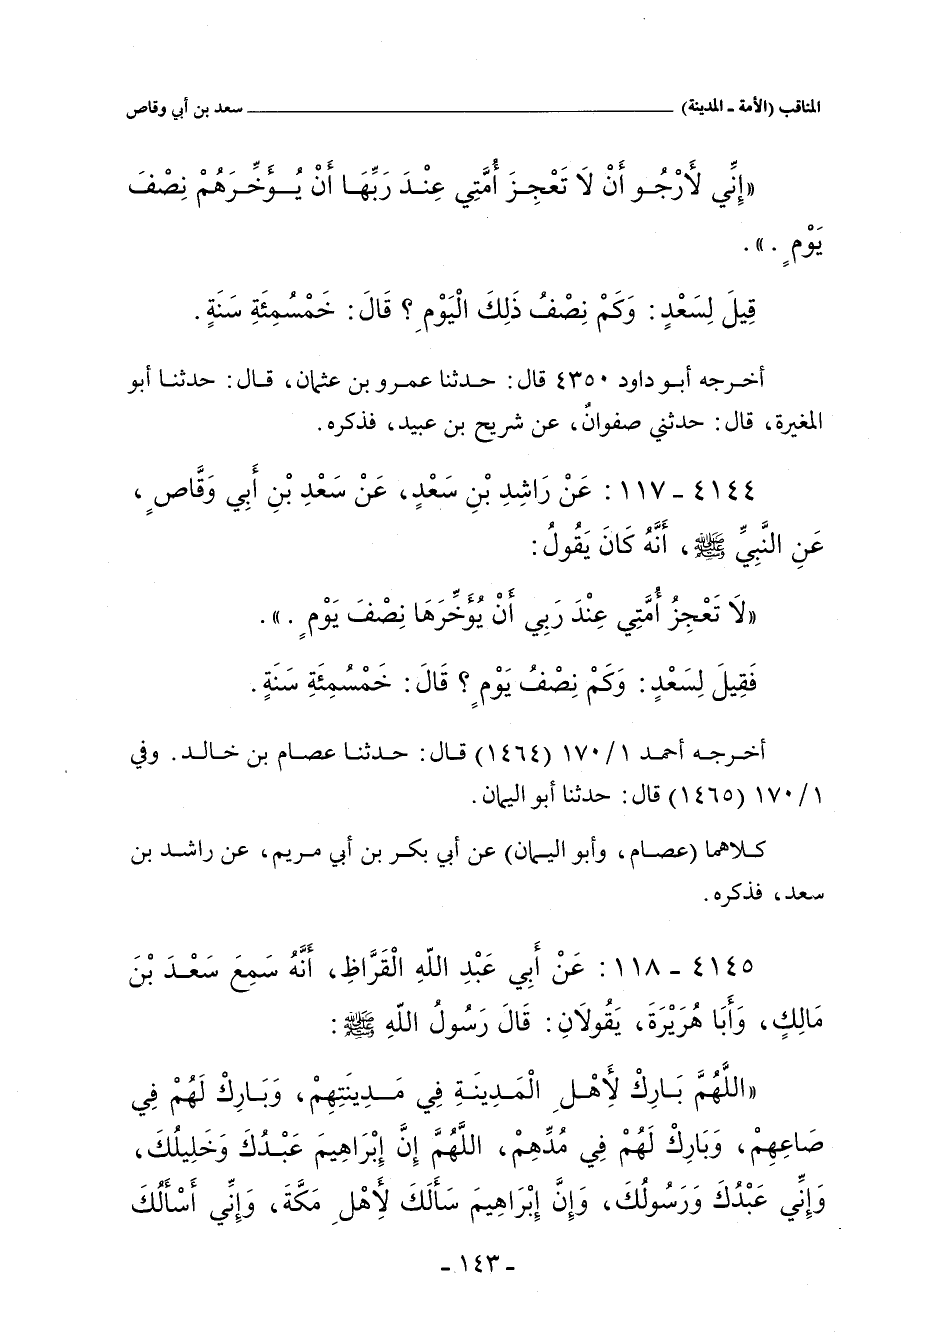 المناقب (الأمة - المدينة) ــــــــــــــــــــــــــــــــ سعد بن أبي وقاص
«إِنِّي لأَرْجُو أَنْ لَا تَعْجِزَ أُمَّتِي عِنْدَ رَبِّهَا أَنْ يُؤَخِّرَهُمْ نِصْفَ
يَوْمٍ.».
قِيلَ لِسَعْدٍ: وَكَمْ نِصْفُ ذَلِكَ الْيَوْمِ؟ قَالَ: خَمْسُمِئَةِ سَنَةٍ.
أخرجه أبو داود ٤٣٥٠ قال: حدثنا عمرو بن عثمان، قال: حدثنا أبو
المغيرة، قال: حدثني صفوانُ، عن شريح بن عبيد، فذكره.
٤١٤٤ - ١١٧: عَنْ رَاشِدِ بْنِ سَعْدٍ، عَنْ سَعْدِ بْنِ أَبِي وَقَّاصٍ،
عَنِ النَّبِيِّ ﷺ، أَنَّهُ كَانَ يَقُولُ:
«لَا تَعْجِزُ أُمَّتِي عِنْدَ رَبِي أَنْ يُؤَخِّرَهَا نِصْفَ يَوْمٍ.».
فَقِيلَ لِسَعْدٍ: وَكَمْ نِصْفُ يَوْمٍ؟ قَالَ: خَمْسُمِئَةِ سَنَةٍ.
أخرجه أحمد ١/١٧٠ (١٤٦٤) قال: حدثنا عصام بن خالد. وفي
١/١٧٠ (١٤٦٥) قال: حدثنا أبو اليمان.
كلاهما (عصام، وأبو اليمان) عن أبي بكر بن أبي مريم، عن راشد بن
سعد، فذكره.
٤١٤٥ - ١١٨: عَنْ أَبِي عَبْدِ اللهِ الْقَرَّاظِ، أَنَّهُ سَمِعَ سَعْدَ بْنَ
مَالِكٍ، وَأَبَا هُرَيْرَةَ، يَقُولَانِ: قَالَ رَسُولُ اللهِ ﷺ:
«اللَّهُمَّ بَارِكْ لأَهْلِ الْمَدِينَةِ فِي مَدِينَتِهِمْ، وَبَارِكْ لَهُمْ فِي
صَاعِهِمْ، وَبَارِكْ لَهُمْ فِي مُدِّهِمْ، اللَّهُمَّ إِنَّ إِبْرَاهِيمَ عَبْدُكَ وَخَلِيلُكَ،
وَإِنِّي عَبْدُكَ وَرَسُولُكَ، وَإِنَّ إِبْرَاهِيمَ سَأَلَكَ لأَهْلِ مَكَّةَ، وَإِنِّي أَسْأَلُكَ
- ١٤٣ -